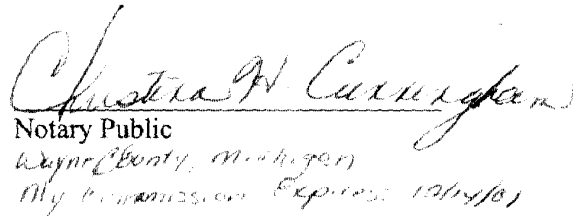 Christina H. Cunningham
Notary Public
Wayne County, Michigan
My Commission Expires: 10/14/01